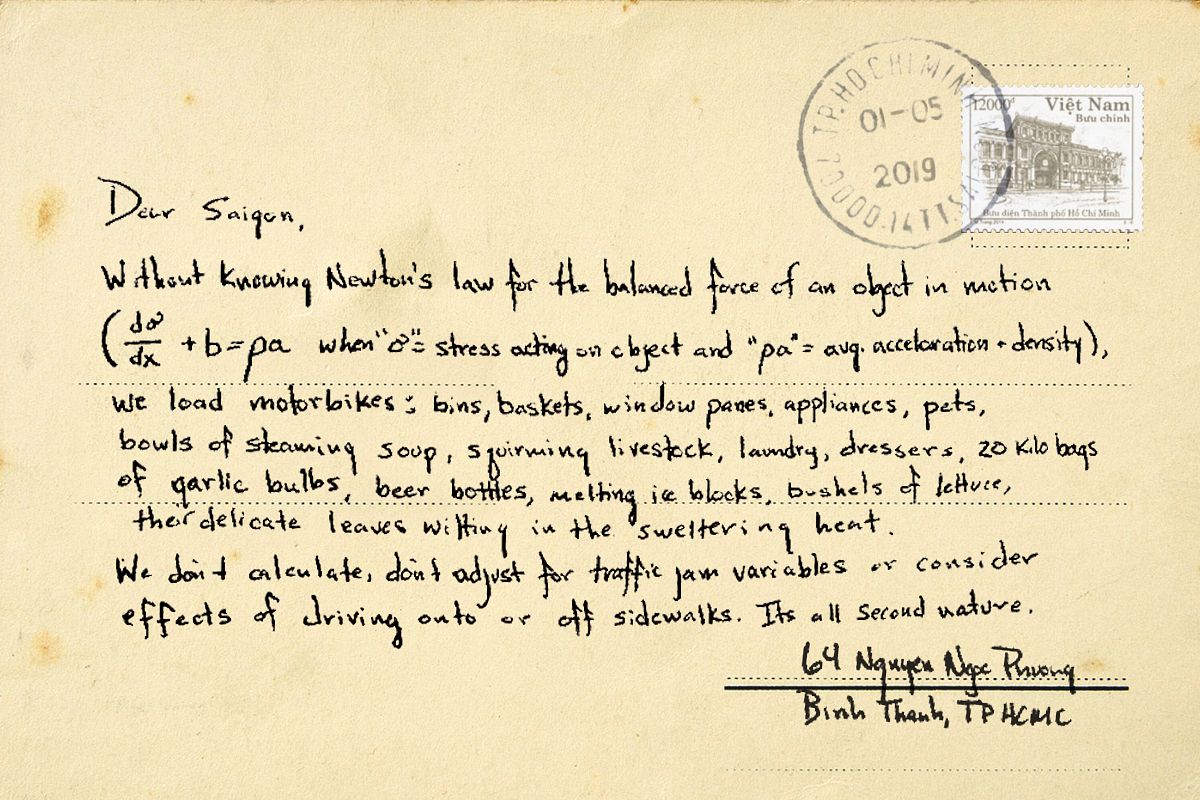 TP.HO CHI MINH
01-05
2019
12000đ
Việt Nam
Bưu chính
Bưu điện Thành phố Hồ Chí Minh
Dear Saigon,
Without knowing Newton's law for the balanced force of an object in motion
(dσ/dx + b = ρa when "σ" = stress acting on object and "ρa" = avg. acceloration • density),
we load motorbikes: bins, baskets, window panes, appliances, pets,
bowls of steaming soup, squirming livestock, laundry, dressers, 20 kilo bags
of garlic bulbs, beer bottles, melting ice blocks, bushels of lettuce,
their delicate leaves wilting in the sweltering heat.
We don't calculate, don't adjust for traffic jam variables or consider
effects of driving onto or off sidewalks. Its all second nature.
64 Nguyen Ngoc Phuong
Binh Thanh, TP HCMC